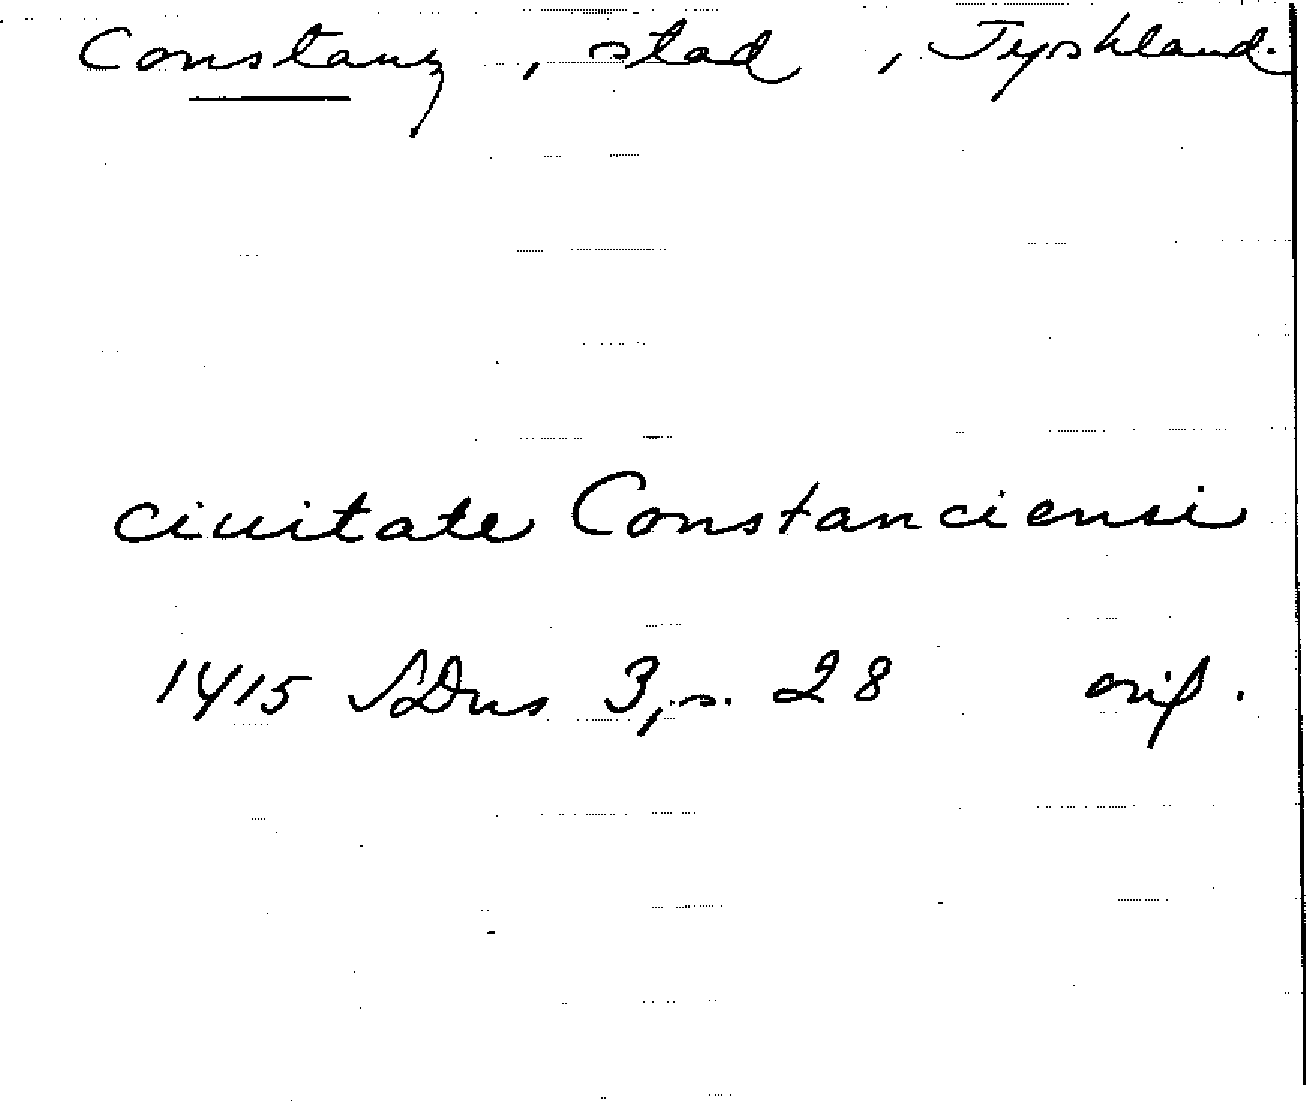 Constanz, stad, Tyskland.
ciuitate Constanciensi
1415 SDns 3, s. 28 orig.